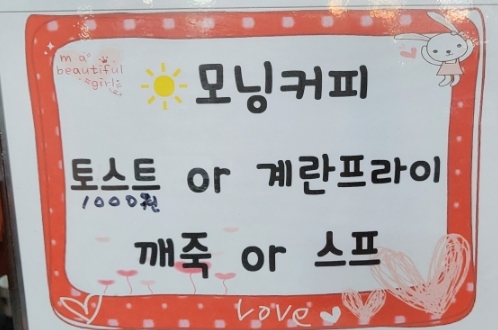 ma
beautiful
girl
모닝커피
토스트 or 계란프라이
1000원
깨죽 or 스프
Love